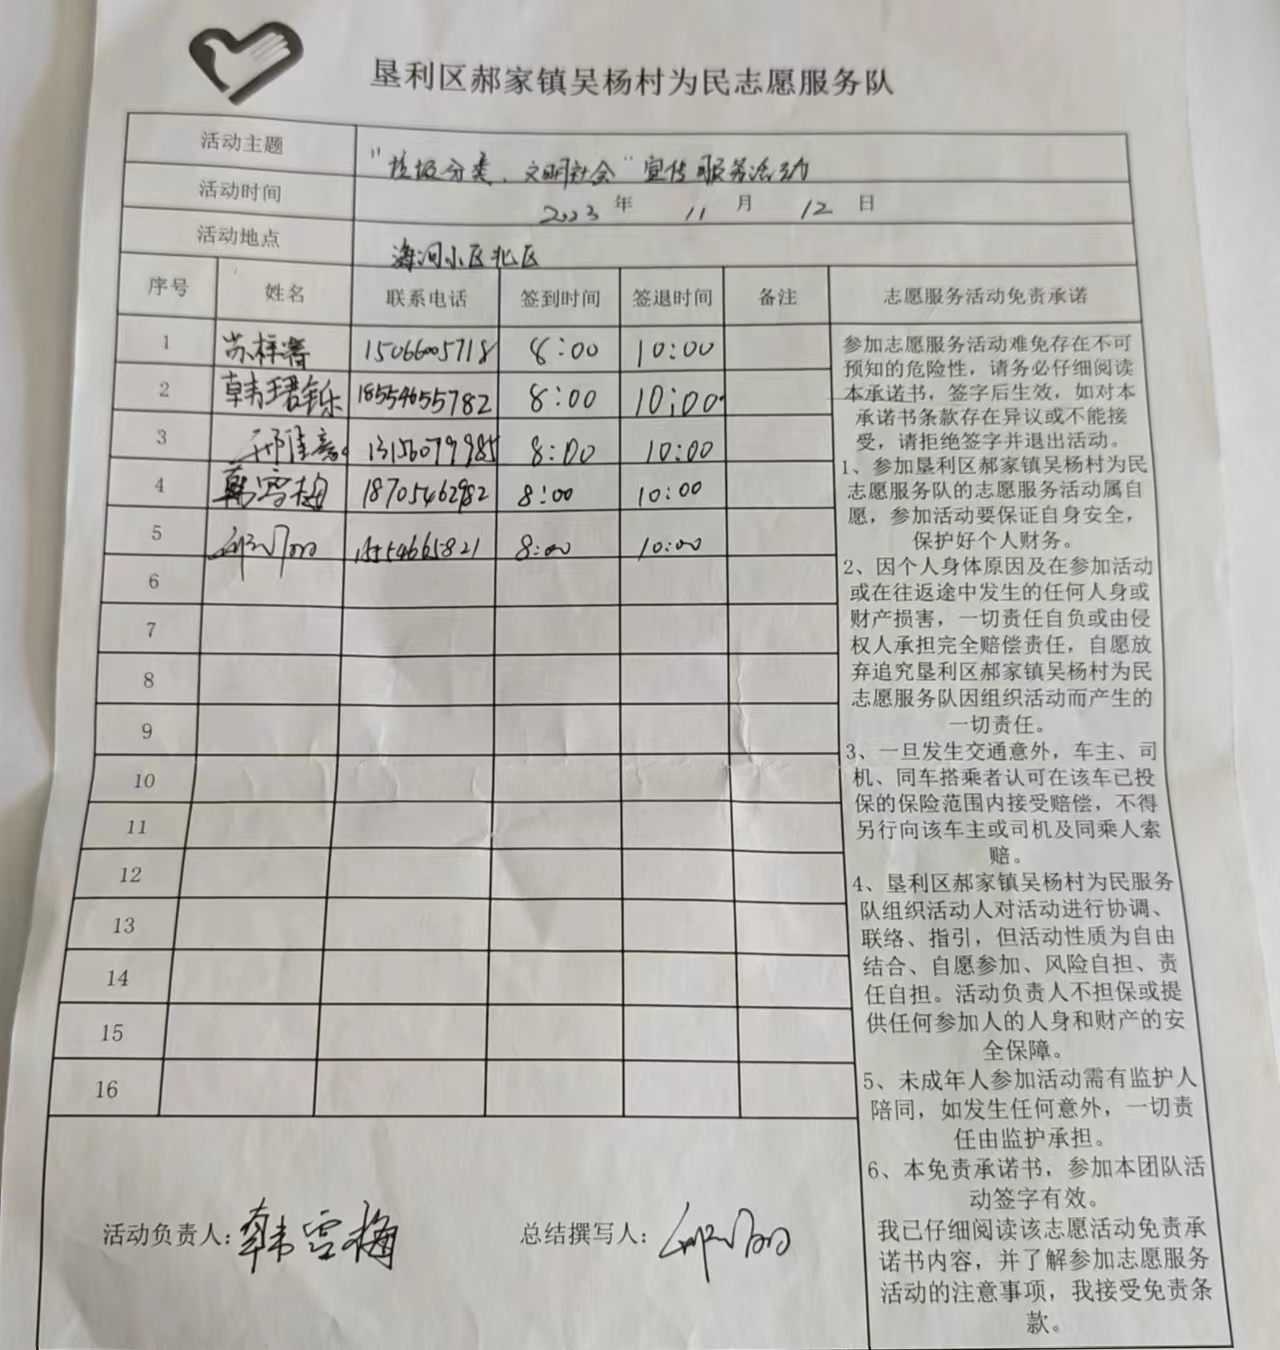 垦利区郝家镇吴杨村为民志愿服务队
活动主题 "垃圾分类、文明社会"宣传服务活动
活动时间 2023 年 11 月 12 日
活动地点 海河小区北区
序号 姓名 联系电话 签到时间 签退时间 备注 志愿服务活动免责承诺
1 苏梓 15066005718 8:00 10:00
2 韩珺铄 18554655782 8:00 10:00
3 邢佳 13156079985 8:00 10:00
4 韩雪梅 18705462982 8:00 10:00
5 15554665821 8:00 10:00
6
7
8
9
10
11
12
13
14
15
16
参加志愿服务活动难免存在不可
预知的危险性，请务必仔细阅读
本承诺书，签字后生效，如对本
承诺书条款存在异议或不能接
受，请拒绝签字并退出活动。
1、参加垦利区郝家镇吴杨村为民
志愿服务队的志愿服务活动属自
愿，参加活动要保证自身安全，
保护好个人财务。
2、因个人身体原因及在参加活动
或在往返途中发生的任何人身或
财产损害，一切责任自负或由侵
权人承担完全赔偿责任，自愿放
弃追究垦利区郝家镇吴杨村为民
志愿服务队因组织活动而产生的
一切责任。
3、一旦发生交通意外，车主、司
机、同车搭乘者认可在该车已投
保的保险范围内接受赔偿，不得
另行向该车主或司机及同乘人索
赔。
4、垦利区郝家镇吴杨村为民服务
队组织活动人对活动进行协调、
联络、指引，但活动性质为自由
结合、自愿参加、风险自担、责
任自担。活动负责人不担保或提
供任何参加人的人身和财产的安
全保障。
5、未成年人参加活动需有监护人
陪同，如发生任何意外，一切责
任由监护承担。
6、本免责承诺书，参加本团队活
动签字有效。
我已仔细阅读该志愿活动免责承
诺书内容，并了解参加志愿服务
活动的注意事项，我接受免责条
款。
活动负责人：韩雪梅 总结撰写人：